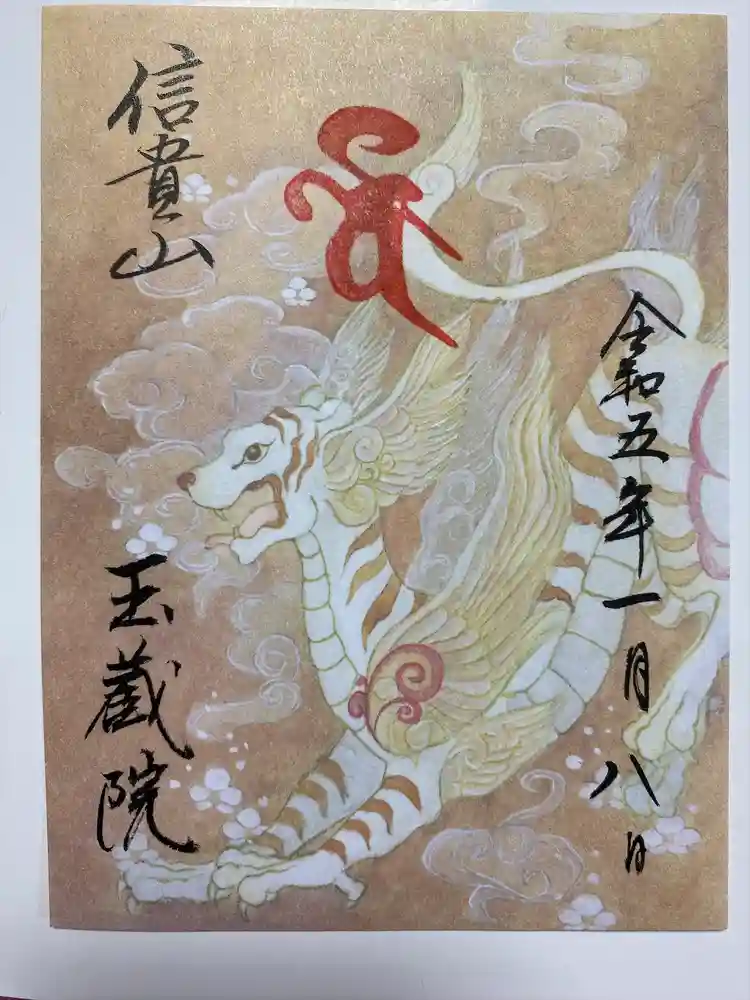 信貴山
令和五年一月八日
玉蔵院